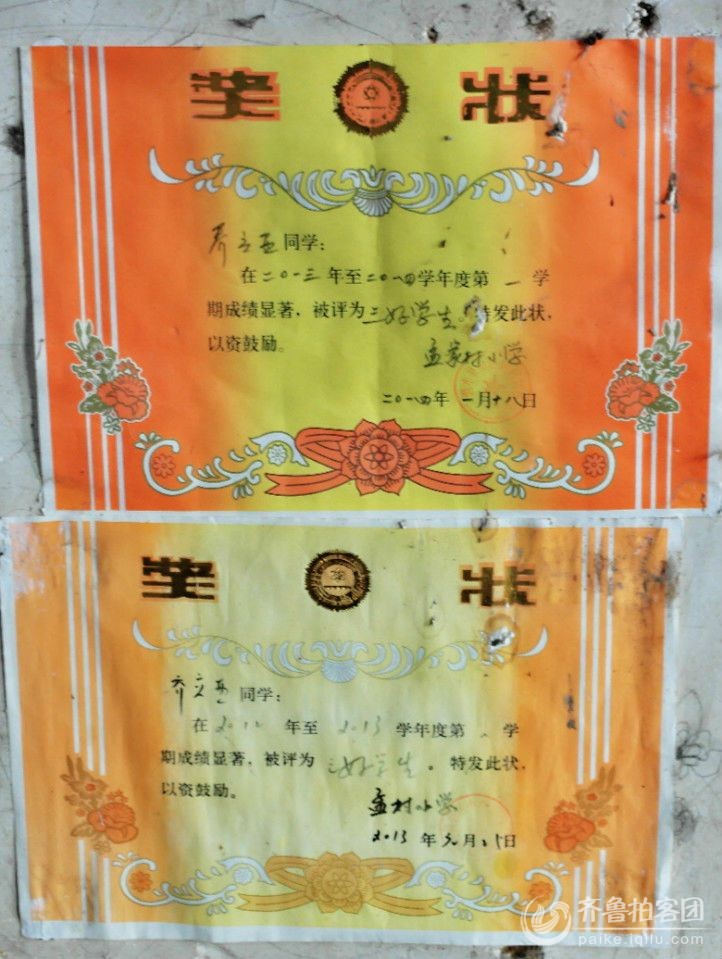 奖 状
齐立亚同学：
在二〇一三年至二〇一四学年度第一学
期成绩显著，被评为三好学生。特发此状，
以资鼓励。
孟家村小学
二〇一四年 一月十八日
奖 状
齐立亚同学：
在2012年至2013学年度第 学
期成绩显著，被评为三好学生。特发此状，
以资鼓励。
孟村小学
2013年 月 日
齐鲁拍客团
paike.iqilu.com